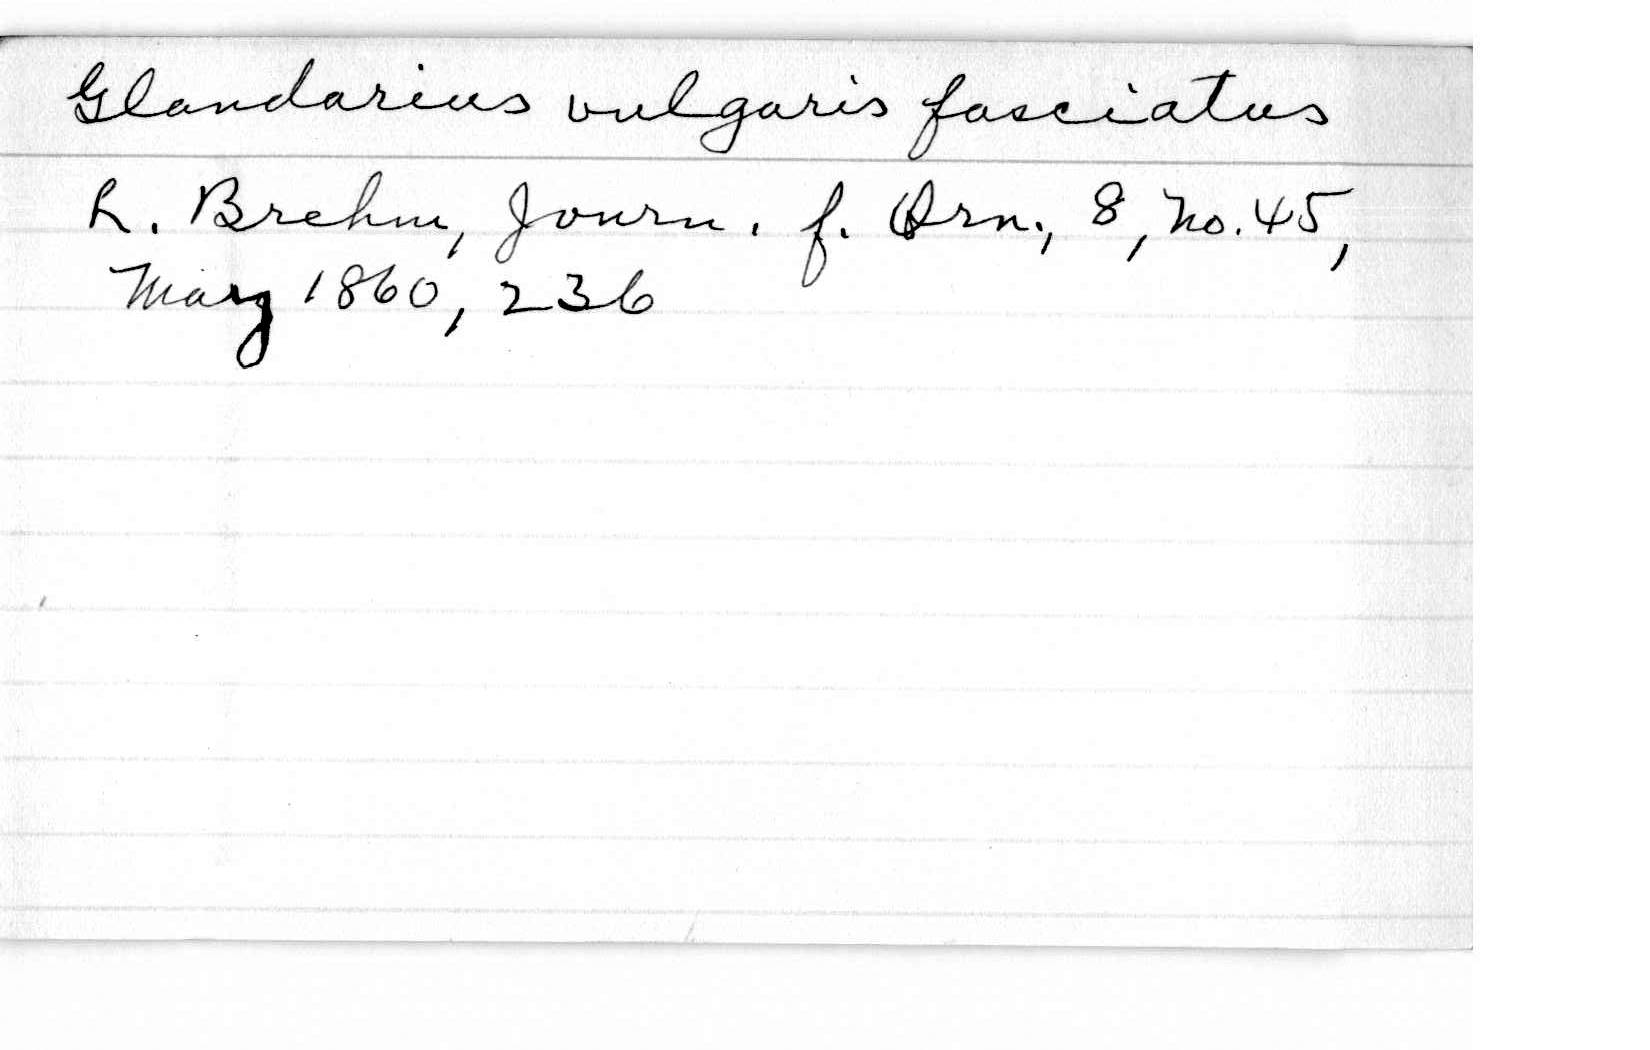 Glandarius vulgaris fasciatus
R. Brehm, Journ. f. Orn., 8, no. 45,
May 1860, 236